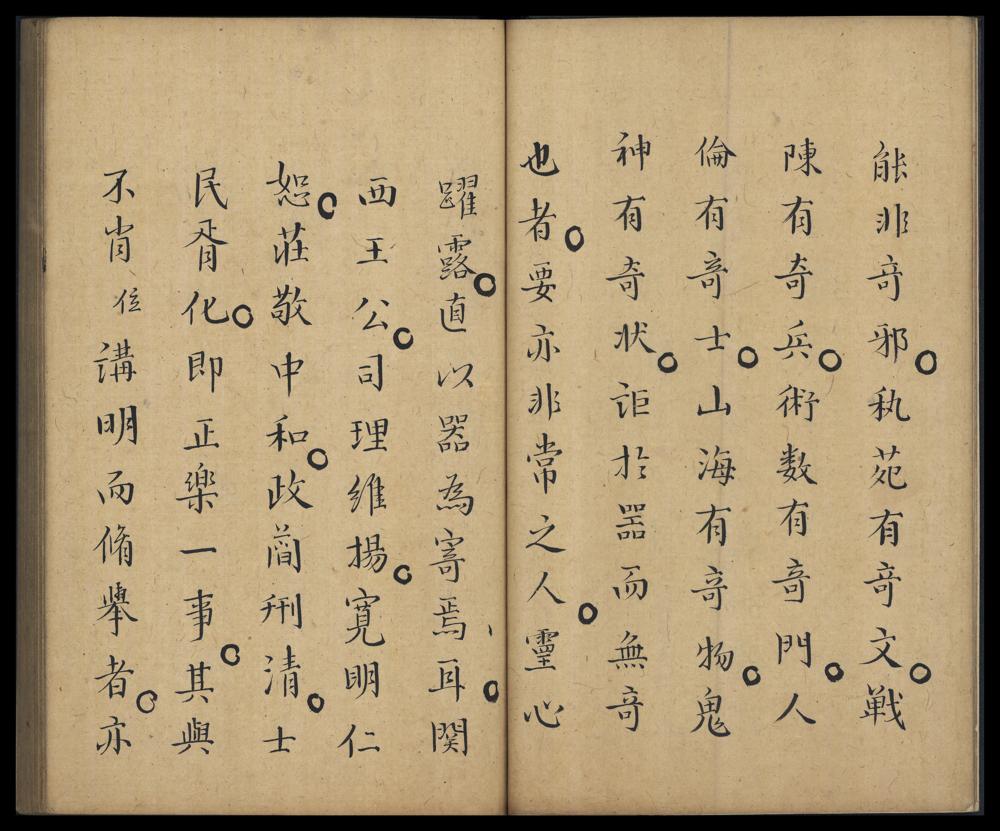 能非竒邪執苑有竒文戰
陳有奇兵術數有竒門人
倫有竒士山海有竒物鬼
神有奇狀詎於噐而無竒
也者要亦非常之人靈心
躍露直以器為寄焉耳関
西王公司理維揚寛明仁
恕莊敬中和政蕳刑清士
民胥化即正樂一事其與
不肖位講明而脩舉者亦